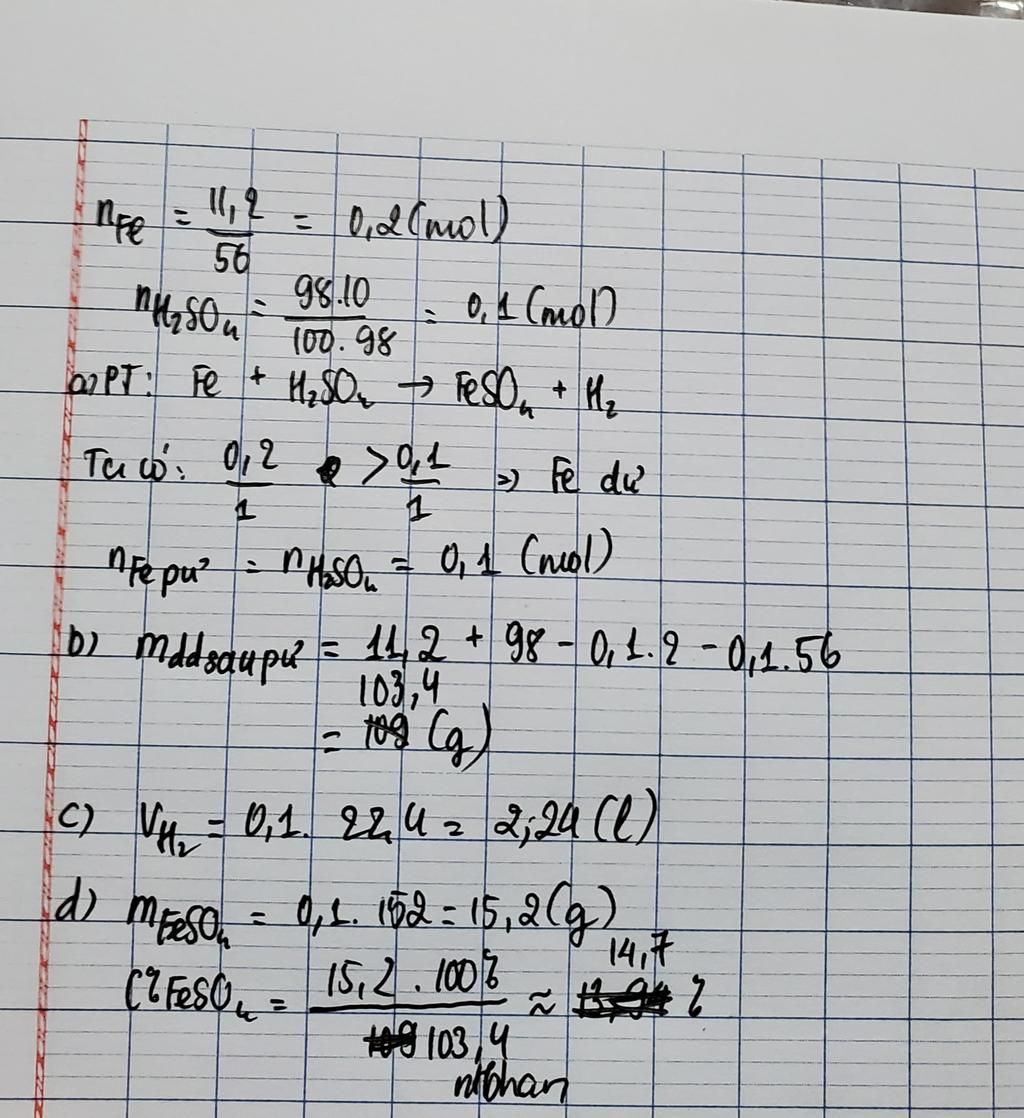 nFe = 11,2/56 = 0,2 (mol)
nH₂SO₄ = 98.10/100.98 = 0,1 (mol)
a) PT: Fe + H₂SO₄ → FeSO₄ + H₂
Ta có: 0,2/1 > 0,1/1 => Fe dư
nFe pư = nH₂SO₄ = 0,1 (mol)
b) mdd sau pư = 11,2 + 98 - 0,1.2 - 0,1.56
= 103,4 (g)
c) VH₂ = 0,1. 22,4 = 2,24 (l)
d) mFeSO₄ = 0,1. 152 = 15,2 (g)
C%FeSO₄ = 15,2 . 100%/103,4 ≈ 14,7 %